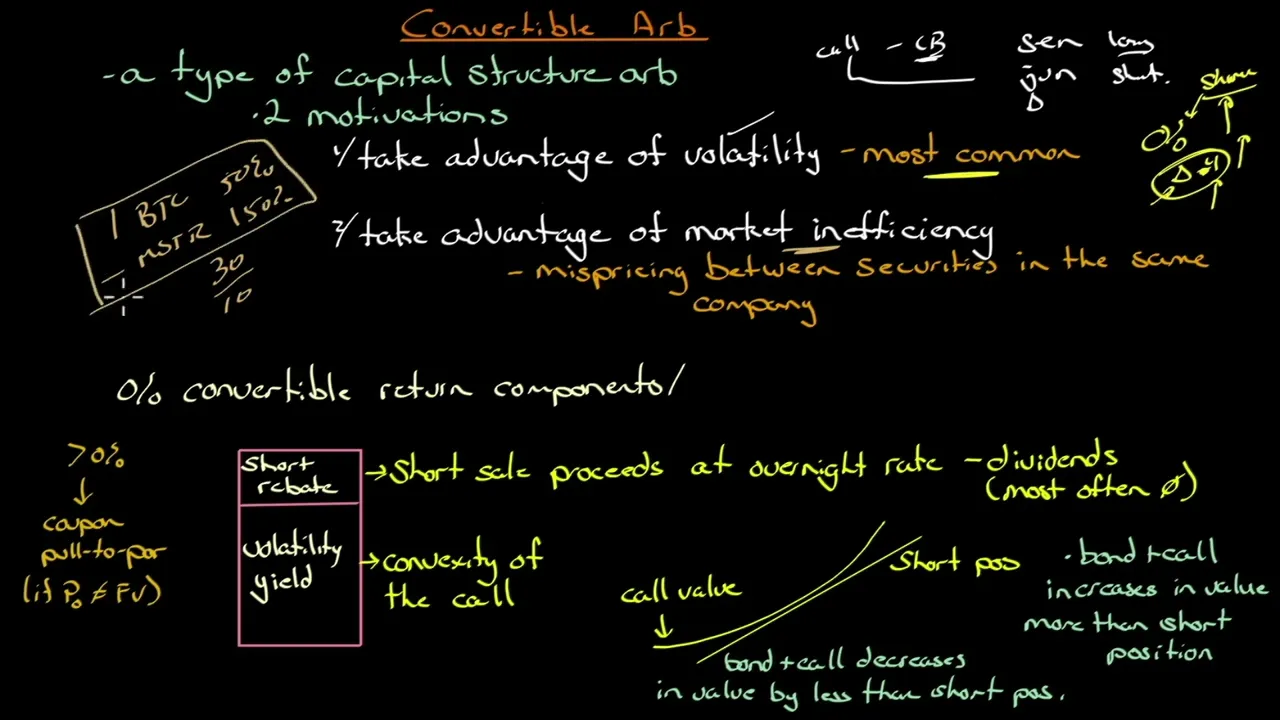 Convertible Arb
- a type of capital structure arb
· 2 motivations
1/ take advantage of volatility - most common
2/ take advantage of market inefficiency
- mispricing between securities in the same
company
call - CB
sen long
jun short.
Δ
share
0%
Δ .4
1 BTC 50%
MSTR 150%
30
10
0% convertible return components/
>0%
coupon
pull-to-par
(if P₀ ≠ FV)
short
rebate
→ short sale proceeds at overnight rate - dividends
(most often ∅)
volatility
yield
→ convexity of
the call
call value
short pos
· bond + call
increases in value
more than short
position
bond + call decreases
in value by less than short pos.